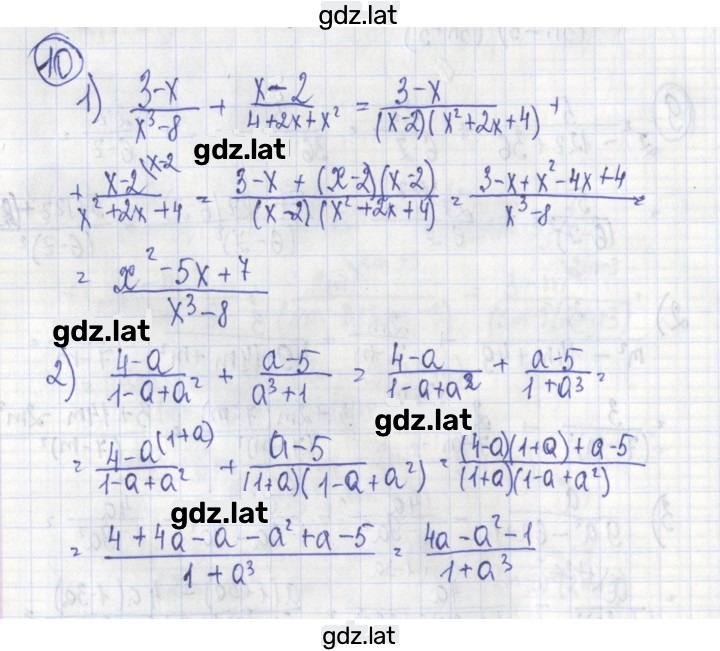 gdz.lat
10
1) (3-x)/(x³-8) + (x-2)/(4+2x+x²) = (3-x)/((x-2)(x²+2x+4)) +
gdz.lat
+ (x-2)/(x²+2x+4) \x-2 = (3-x+(x-2)(x-2))/((x-2)(x²+2x+4)) = (3-x+x²-4x+4)/(x³-8) =
= (x²-5x+7)/(x³-8)
gdz.lat
2) (4-a)/(1-a+a²) + (a-5)/(a³+1) = (4-a)/(1-a+a²) + (a-5)/(1+a³) =
gdz.lat
= (4-a)/(1-a+a²) (1+a) + (a-5)/((1+a)(1-a+a²)) = ((4-a)(1+a)+a-5)/((1+a)(1-a+a²))
gdz.lat
= (4+4a-a-a²+a-5)/(1+a³) = (4a-a²-1)/(1+a³)
gdz.lat